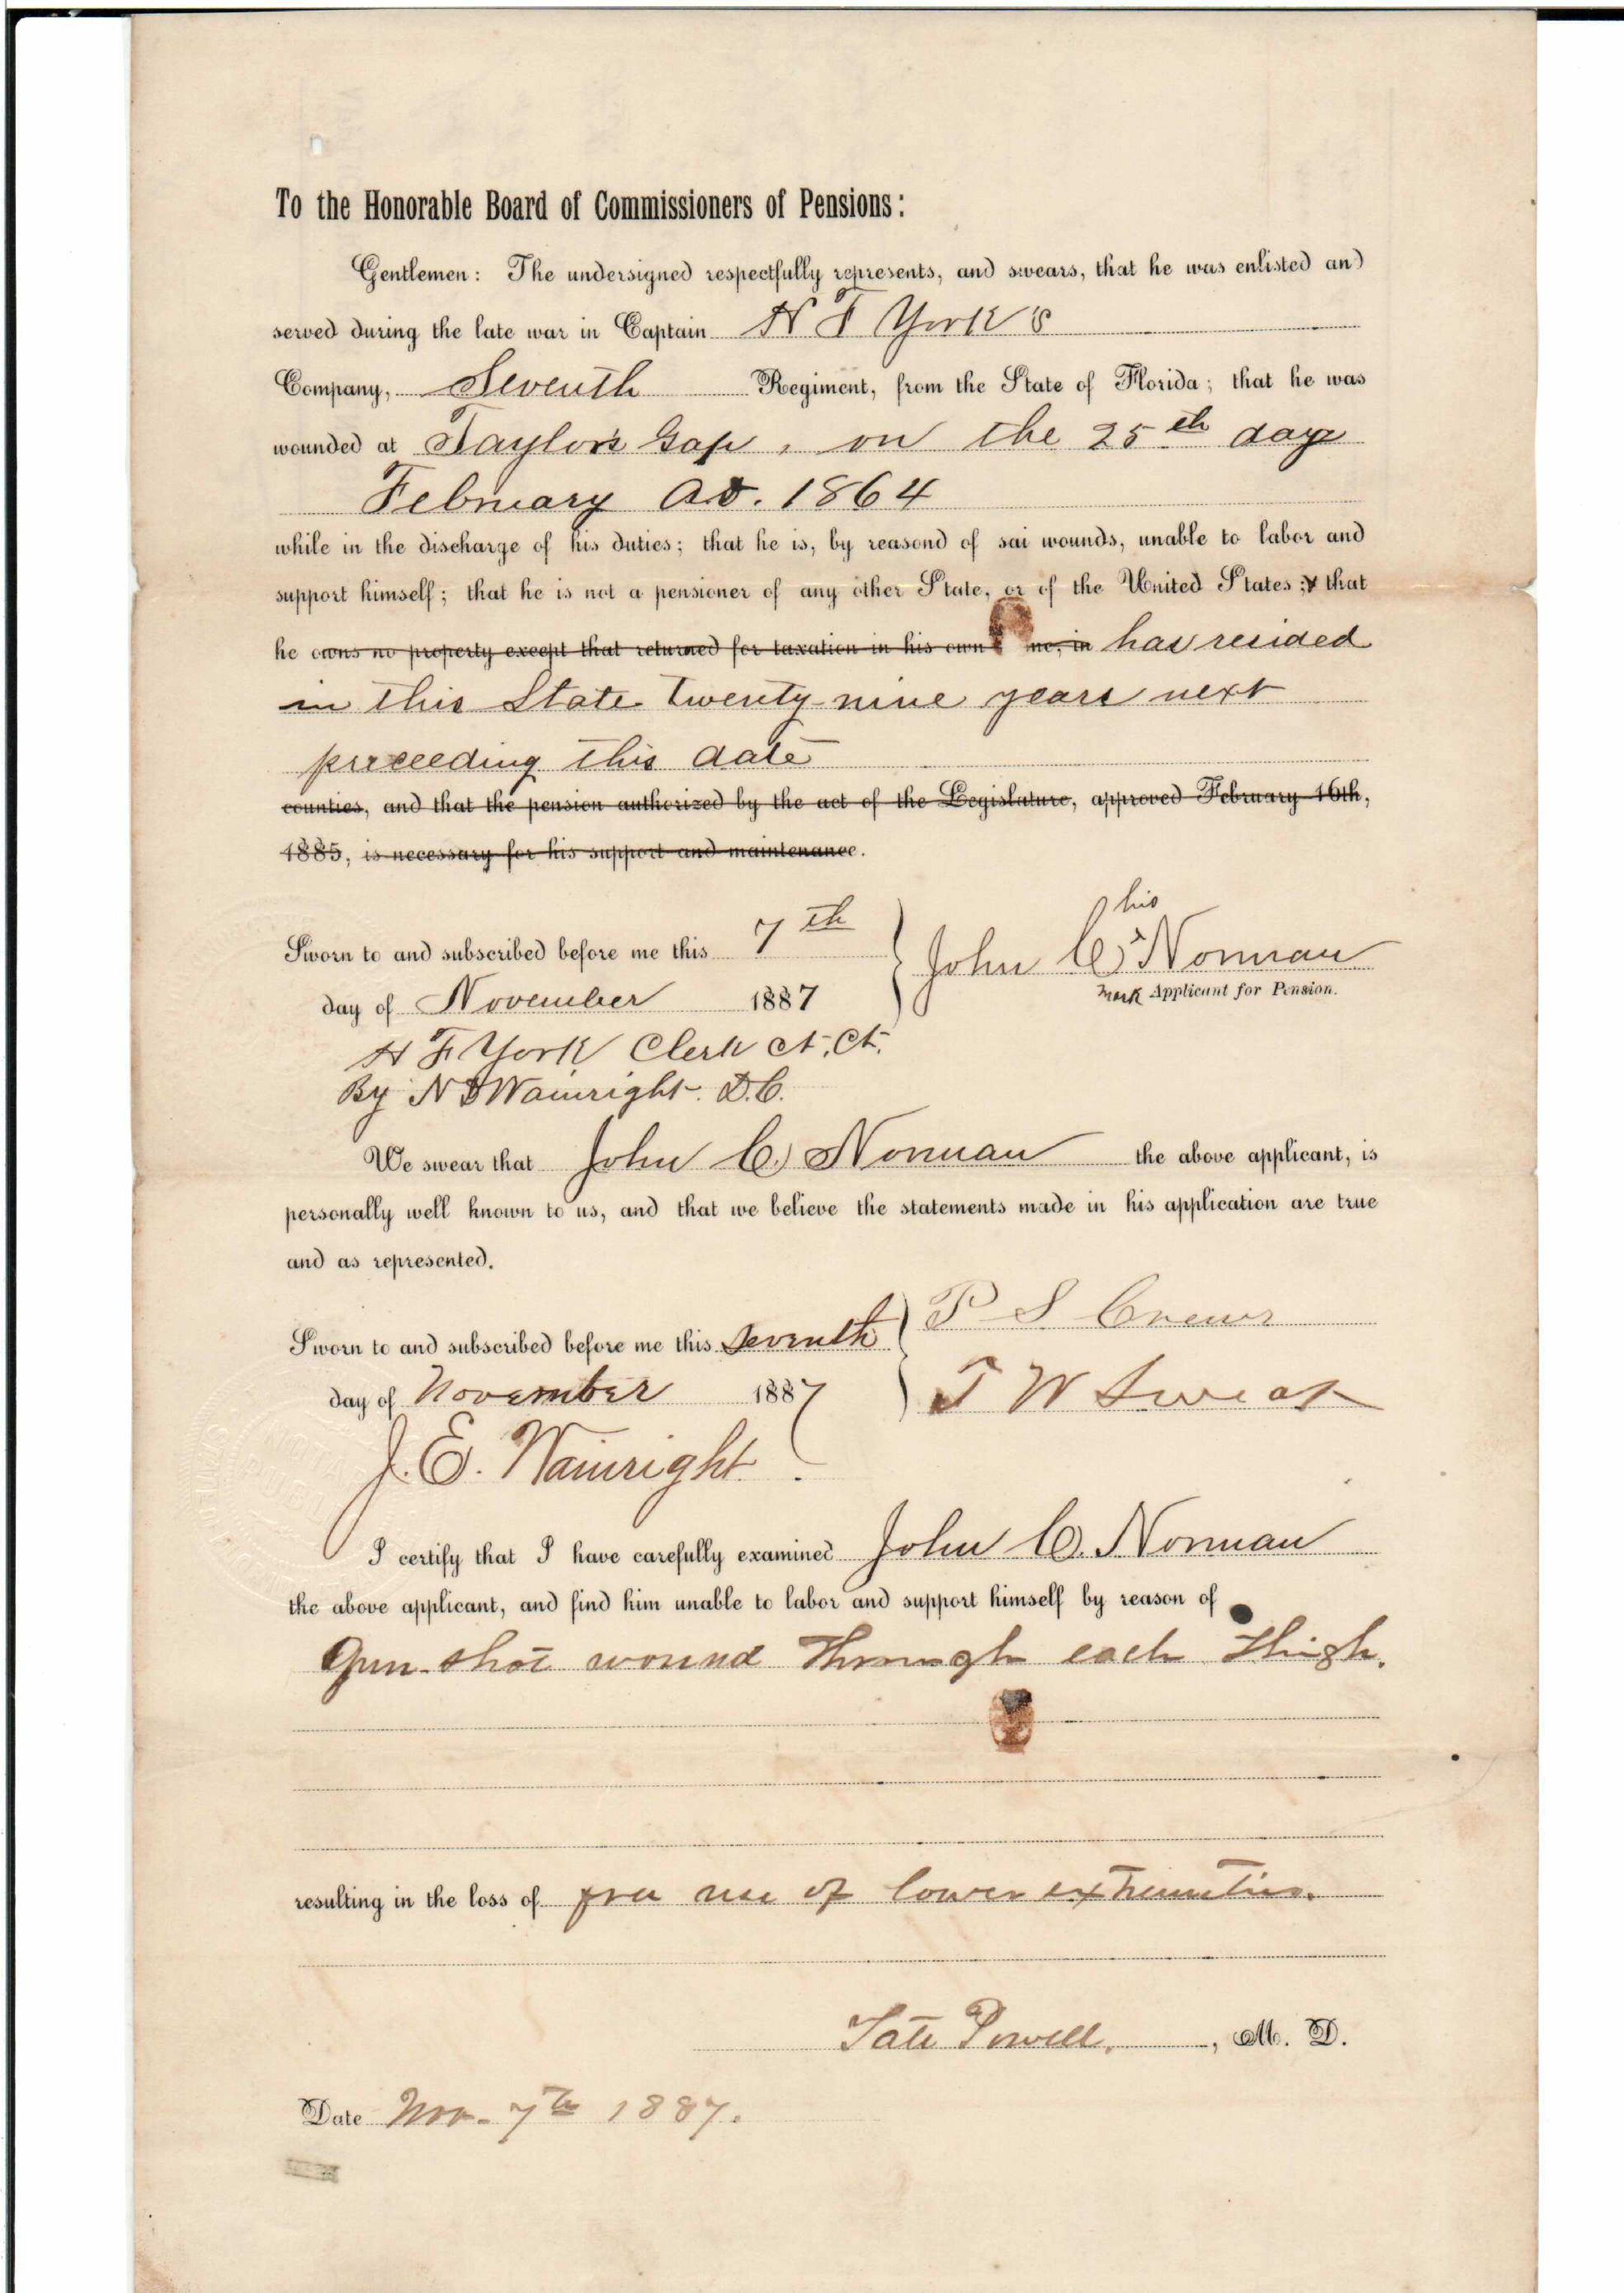 To the Honorable Board of Commissioners of Pensions:
Gentlemen: The undersigned respectfully represents, and swears, that he was enlisted and
served during the late war in Captain N F York's
Company, Seventh Regiment, from the State of Florida; that he was
wounded at Taylors Gap, on the 25th day
February A.D. 1864
while in the discharge of his duties; that he is, by reasond of sai wounds, unable to labor and
support himself; that he is not a pensioner of any other State, or of the United States; & that
he owns no property except that returned for taxation in his own me, in has resided
in this State twenty-nine years next
preceeding this date
counties, and that the pension authorized by the act of the Legislature, approved February 16th,
1885, is necessary for his support and maintenance.
Sworn to and subscribed before me this 7th
day of November 1887
his
John C x Norman
mark Applicant for Pension.
H F York Clerk Ct. Ct.
By N D Wainright. D.C.
We swear that John C. Norman the above applicant, is
personally well known to us, and that we believe the statements made in his application are true
and as represented.
Sworn to and subscribed before me this Seventh
day of November 1887
P S Crews
T W Sweat
J. E. Wainright
I certify that I have carefully examined John C. Norman
the above applicant, and find him unable to labor and support himself by reason of
Gun-shot wound Through each Thigh.
resulting in the loss of free use of lower extremities.
Tate Powell, , M. D.
Date Nov- 7th 1887.